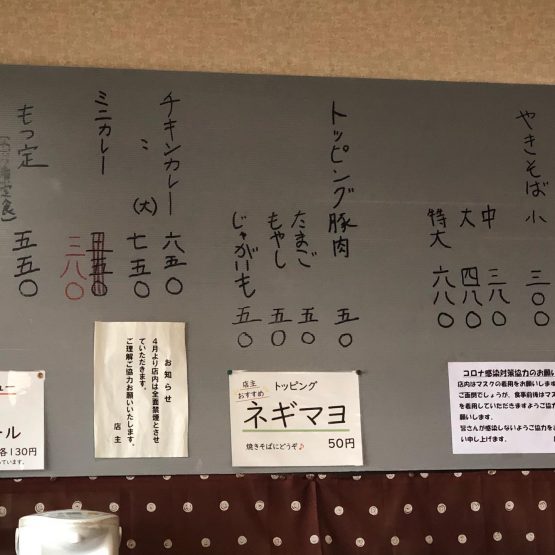 やきそば 小 三〇〇
中 三八〇
大 四八〇
特大 六八〇
トッピング 豚肉 五〇
たまご 五〇
もやし 五〇
じゃがいも 五〇
チキンカレー 六五〇
〃 (大) 七五〇
ミニカレー 三八〇
もつ定 五五〇
コロナ感染対策協力のお願い
店内はマスクの着用をお願いします
ご面倒でしょうが、食事前後はマス
を着用していただきますようご協力
願いします。
皆さんが感染しないようご協力をお
い申し上げます。
店主
おすすめ
トッピング
ネギマヨ
焼きそばにどうぞ♪ 50円
お知らせ
4月より店内は全面禁煙とさせ
ていただきます。
ご理解ご協力お願いいたします。
店主
ュー
ール
各130円
っています。